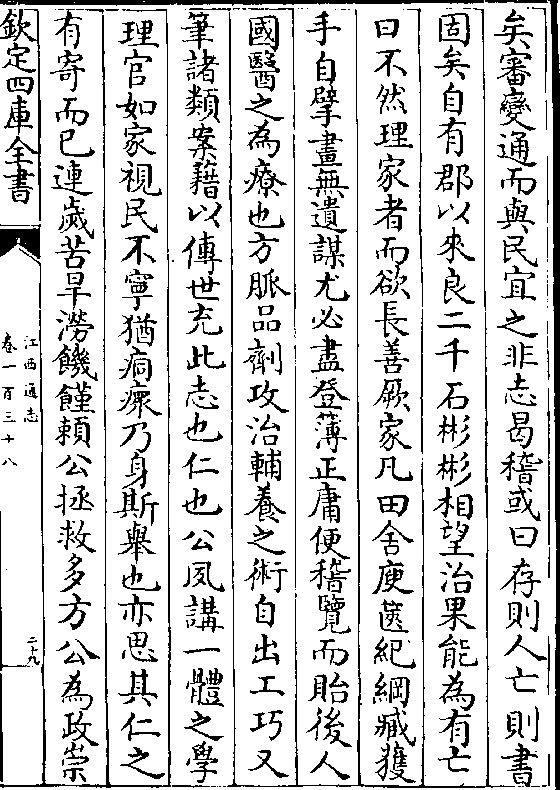 矣審變通而與民宜之非志曷稽或曰存則人亡則書
固矣自有郡以來良二千石彬彬相望治果能為有亡
曰不然理家者而欲長善厥家凡田舍庾篋紀綱臧獲
手自擘畫無遺謀尤必盡登薄正庸便稽覽而貽後人
國醫之為療也方脈品劑攻治輔養之術自出工巧又
筆諸類案藉以傳世充此志也仁也公夙講一體之學
理官如家視民不寧猶痌瘝乃身斯舉也亦思其仁之
有寄而已連歲苦旱澇饑饉賴公拯救多方公為政崇
欽定四庫全書
江西通志
卷一百三十八
二十九